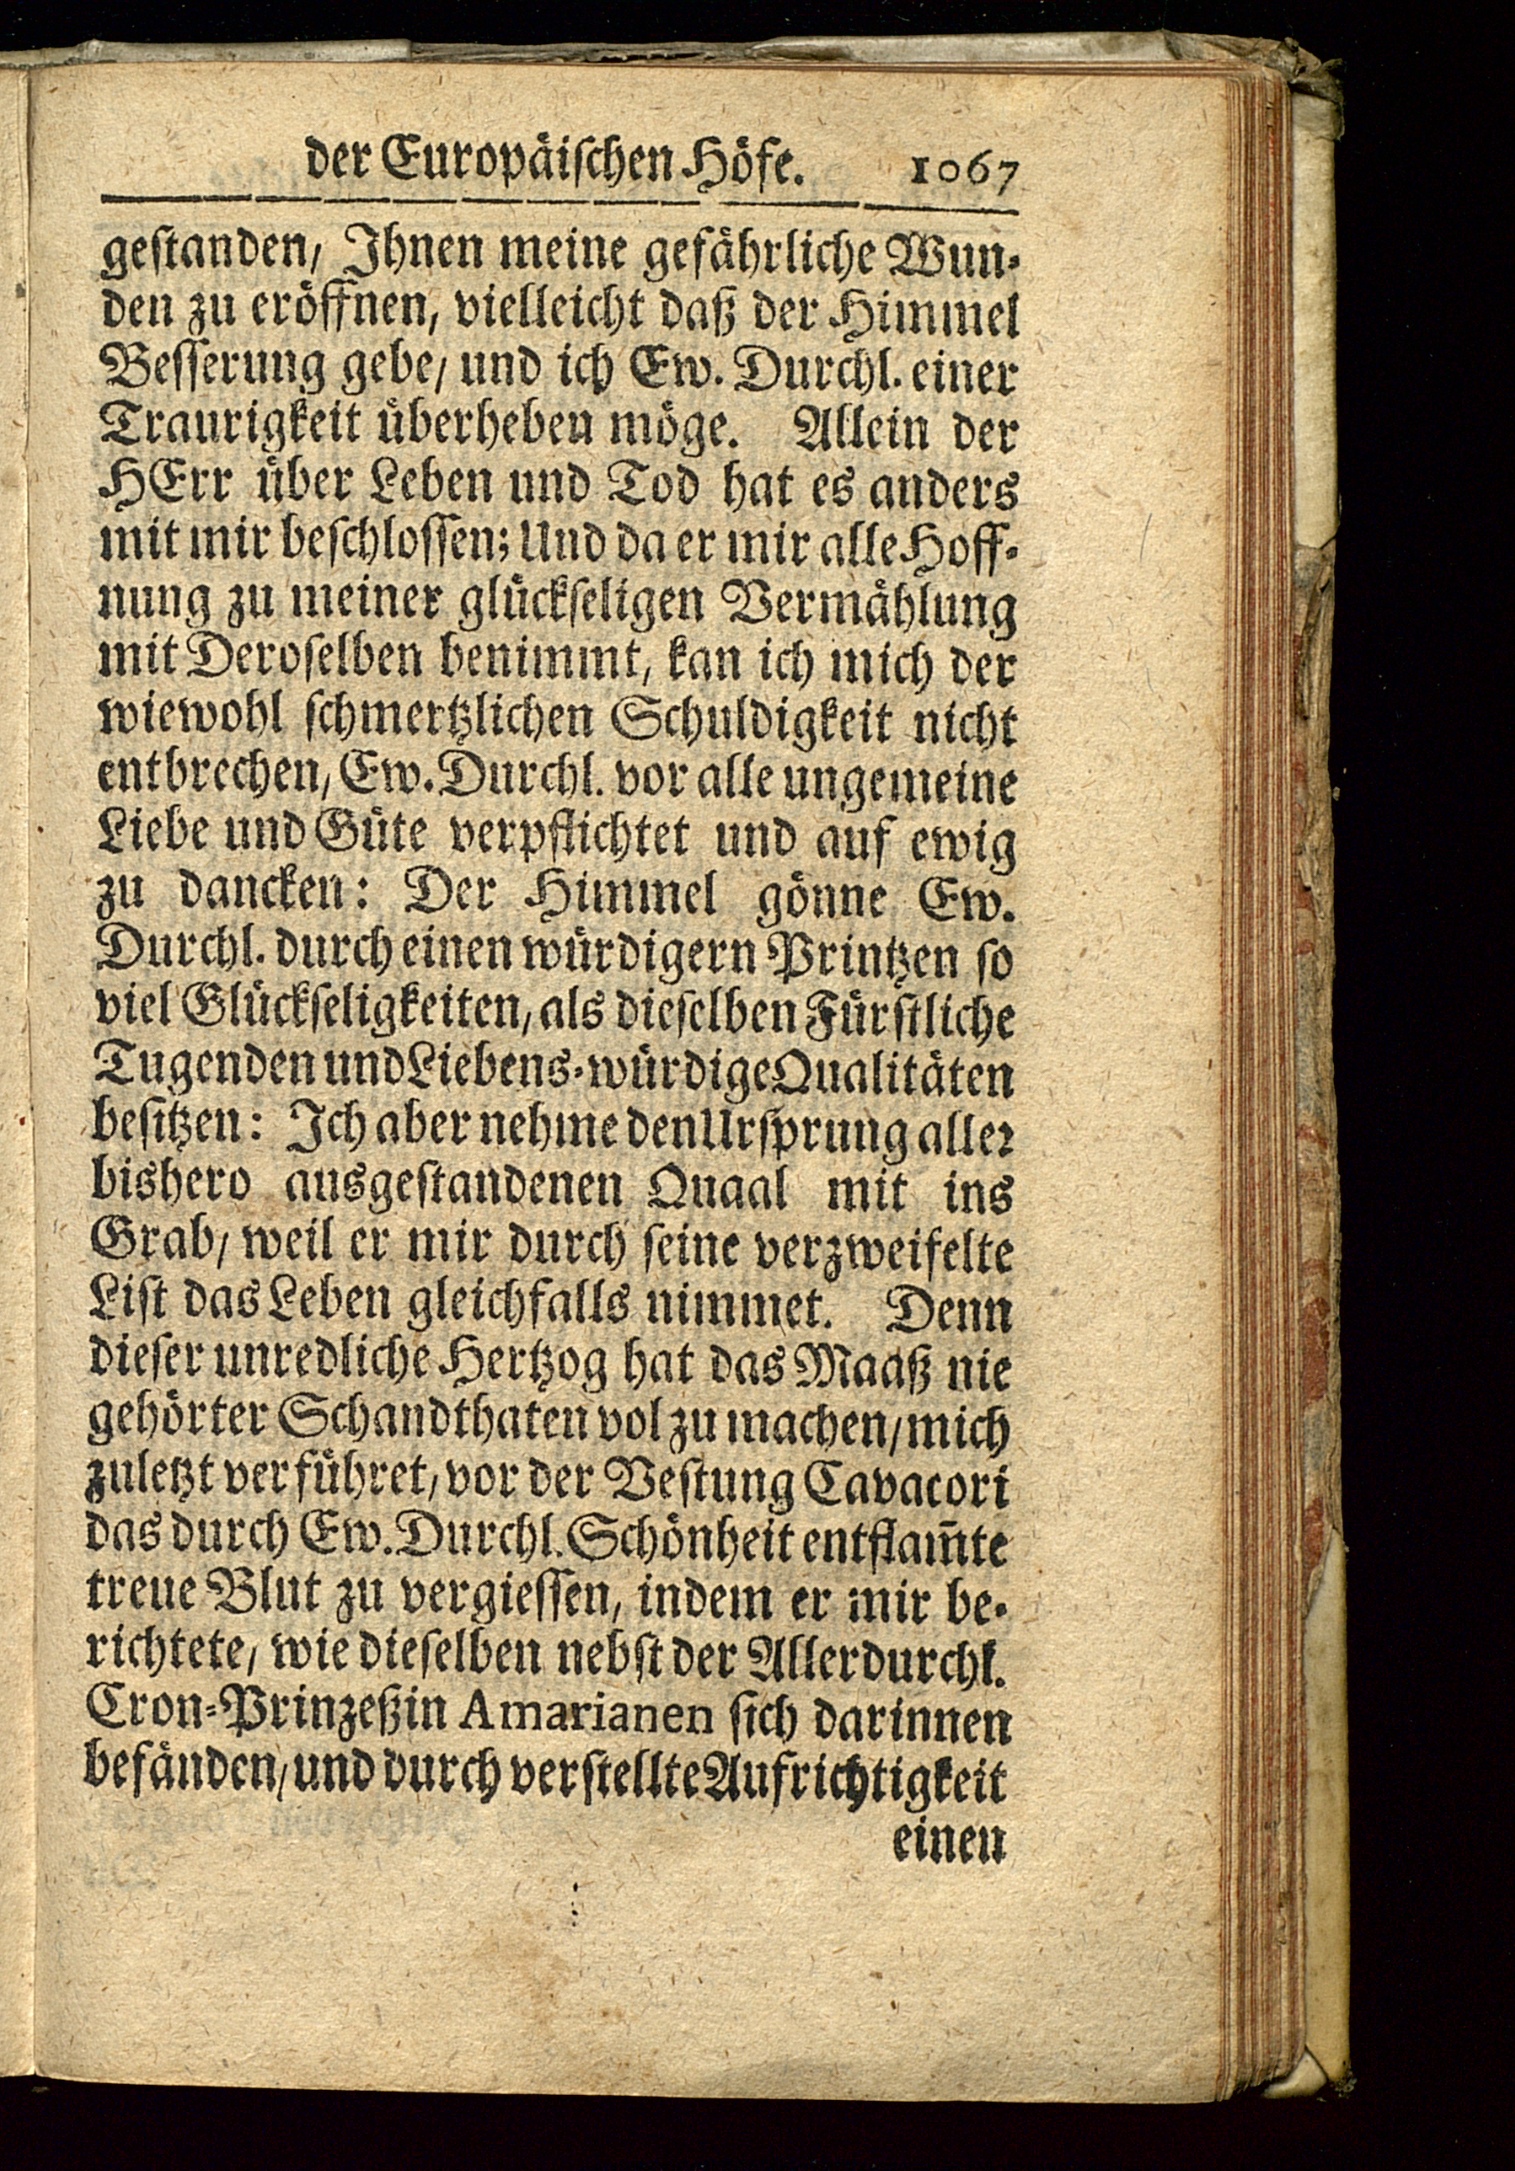 der Europäiſchen Höfe. 1067
geſtanden/ Ihnen meine gefährliche Wun-
den zu eröffnen, vielleicht daß der Himmel
Beſſerung gebe/ und ich Ew. Durchl. einer
Traurigkeit überheben möge. Allein der
HErr über Leben und Tod hat es anders
mit mir beſchloſſen; Und da er mir alle Hoff-
nung zu meiner glückſeligen Vermählung
mit Deroſelben benimmt, kan ich mich der
wiewohl ſchmertzlichen Schuldigkeit nicht
entbrechen, Ew. Durchl. vor alle ungemeine
Liebe und Güte verpflichtet und auf ewig
zu dancken: Der Himmel gönne Ew.
Durchl. durch einen würdigern Printzen ſo
viel Glückſeligkeiten, als dieſelben Fürſtliche
Tugenden und Liebens-würdige Qualitäten
beſitzen: Ich aber nehme den Urſprung aller
bishero ausgeſtandenen Quaal mit ins
Grab/ weil er mir durch ſeine verzweifelte
Liſt das Leben gleichfalls nimmet. Denn
dieſer unredliche Hertzog hat das Maaß nie
gehörter Schandthaten vol zu machen/ mich
zuletzt verführet/ vor der Veſtung Cavacori
das durch Ew. Durchl. Schönheit entflam̃te
treue Blut zu vergieſſen, indem er mir be-
richtete/ wie dieſelben nebſt der Allerdurchl.
Cron-Prinzeßin Amarianen ſich darinnen
befänden/ und durch verſtellte Aufrichtigkeit
einen